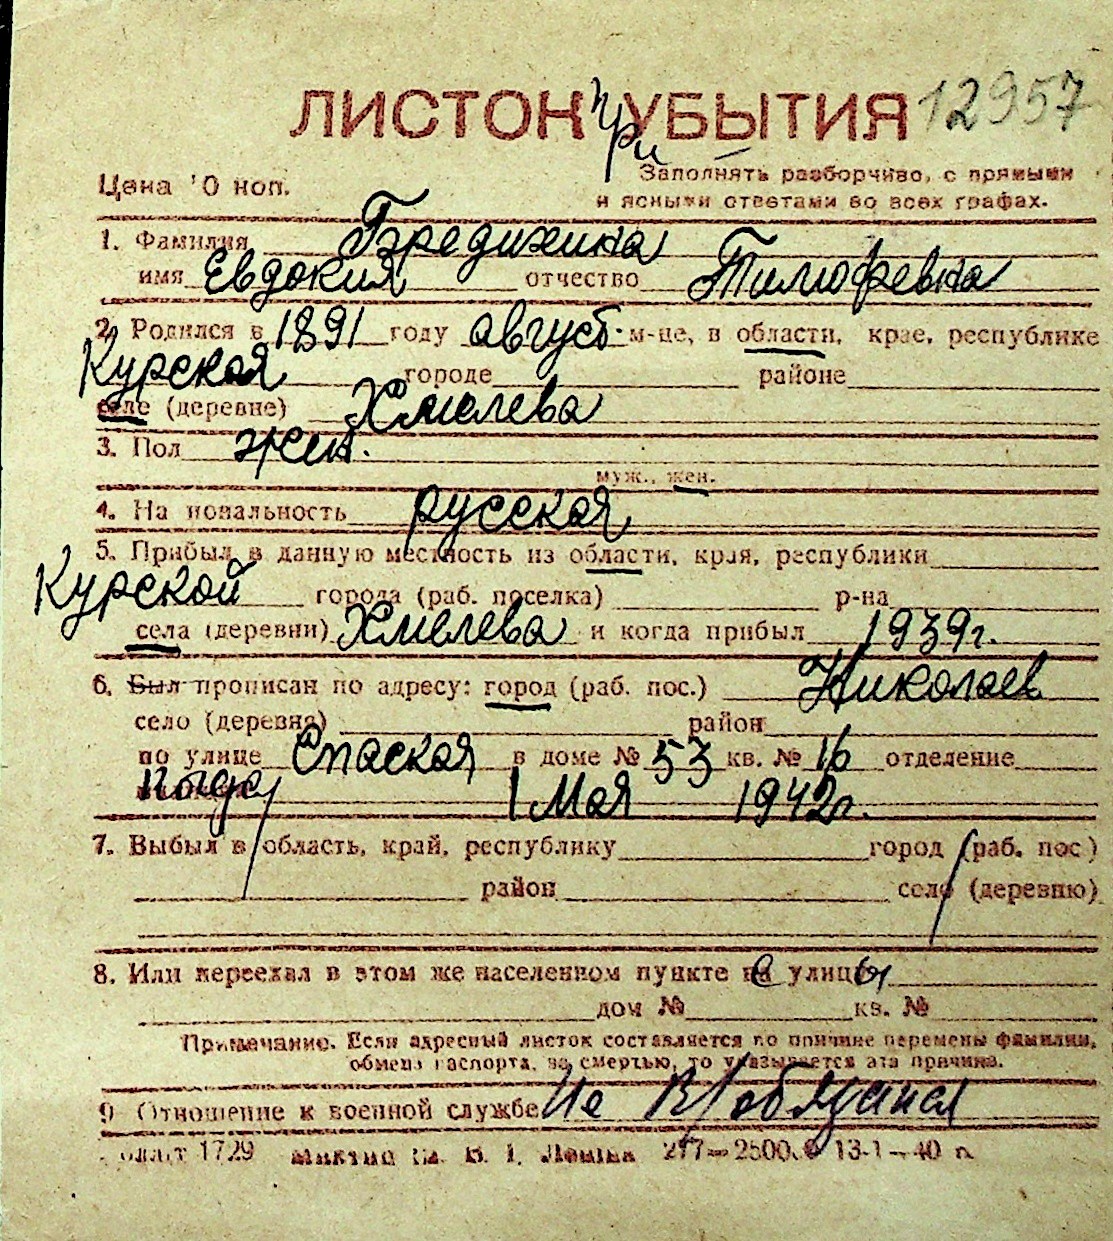 ЛИСТОК УБЫТИЯ 12957
При
Цена 10 коп.
Заполнять разборчиво, с прямыми
и ясными ответами во всех графах.
1. Фамилия Бредихина
имя Евдокия отчество Тимофевна
2. Родился в 1891 году август м-це, в области, крае, республике
Курская городе районе
селе (деревне) Хмелева
3. Пол жен.
муж., жен.
4. Национальность русская
5. Прибыл в данную местность из области, края, республики
Курской города (раб. поселка) р-на
села (деревни) Хмелева и когда прибыл 1939г.
6. Был прописан по адресу: город (раб. пос.) Николаев
село (деревня) район
по улице Спаская в доме № 53 кв. № 16 отделение
1 Мая 1942г.
7. Выбыл в область, край, республику город (раб. пос.)
район село (деревню)
8. Или переехал в этом же населенном пункте с улицы
дом № кв. №
Примечание. Если адресный листок составляется по причине перемены фамилии,
обмена паспорта, за смертью, то указывается эта причина.
9. Отношение к военной службе Не в/обязаная
1729 13-1—40 г.